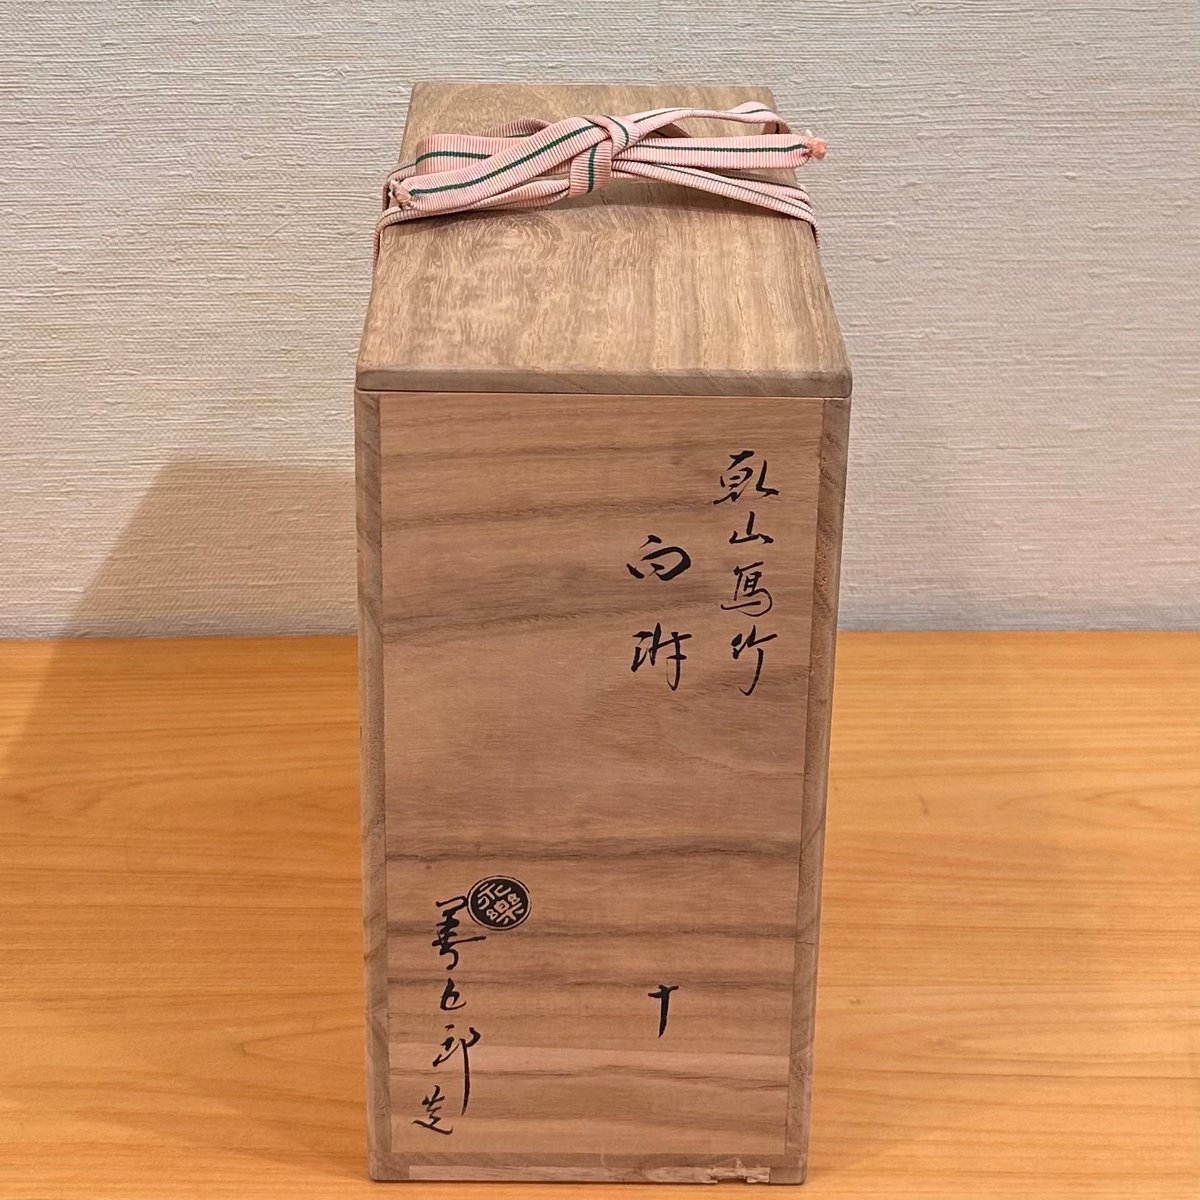 乾山寫竹
向附
十
永樂
善五郎造